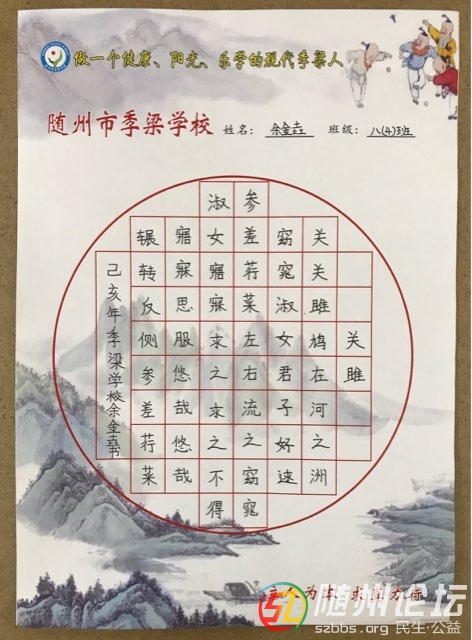 做一个健康、阳光、乐学的现代季梁人
随州市季梁学校 姓名：余金垚 班级：八(4)班
关雎
关关雎鸠在河之洲
窈窕淑女君子好逑
参差荇菜左右流之窈窕
淑女寤寐求之求之不得
寤寐思服悠哉悠哉
辗转反侧参差荇菜
己亥年季梁学校余金垚书
人为
随州论坛
szbbs.org 民生·公益